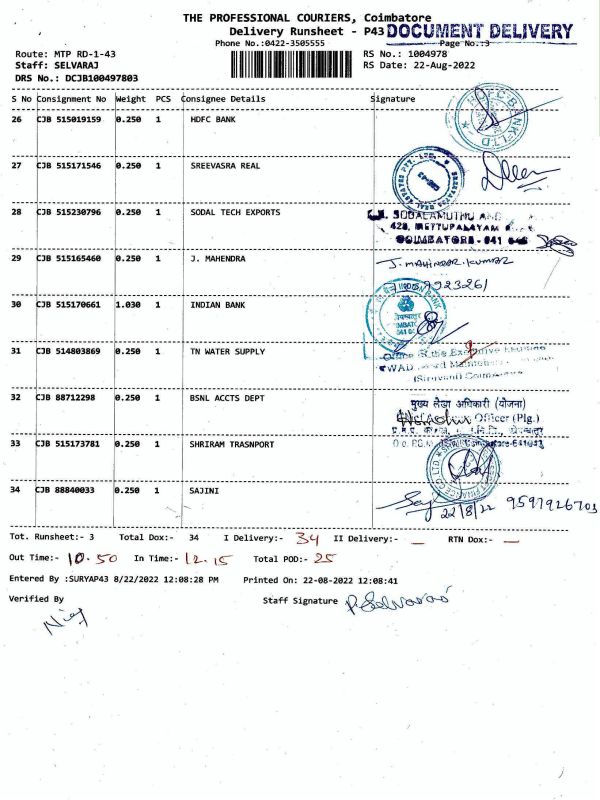 THE PROFESSIONAL COURIERS, Coimbatore
Delivery Runsheet - P43 DOCUMENT DELIVERY
Phone No.:0422-3505555 Page No.:3
Route: MTP RD-1-43 RS No.: 1004978
Staff: SELVARAJ RS Date: 22-Aug-2022
DRS No.: DCJB100497803
S No Consignment No Weight PCS Consignee Details Signature
26 CJB 515019159 0.250 1 HDFC BANK
27 CJB 515171546 0.250 1 SREEVASRA REAL
28 CJB 515230796 0.250 1 SODAL TECH EXPORTS
SODALAMUTHU AND
428, METTUPALAYAM
COIMBATORE - 641
29 CJB 515165460 0.250 1 J. MAHENDRA J. MAHINDAR.KUMAR
30 CJB 515170661 1.030 1 INDIAN BANK
31 CJB 514803869 0.250 1 TN WATER SUPPLY
Office of the Executive
TWAD
32 CJB 88712298 0.250 1 BSNL ACCTS DEPT
मुख्य लेखा अधिकारी (योजना)
Officer (Plg.)
33 CJB 515173781 0.250 1 SHRIRAM TRASNPORT
34 CJB 88840033 0.250 1 SAJINI
22/8/22 9597926703
Tot. Runsheet:- 3 Total Dox:- 34 I Delivery:- 34 II Delivery:- — RTN Dox:- —
Out Time:- 10.50 In Time:- 12.15 Total POD:- 25
Entered By :SURYAP43 8/22/2022 12:08:28 PM Printed On: 22-08-2022 12:08:41
Verified By Staff Signature P. Selvaraj